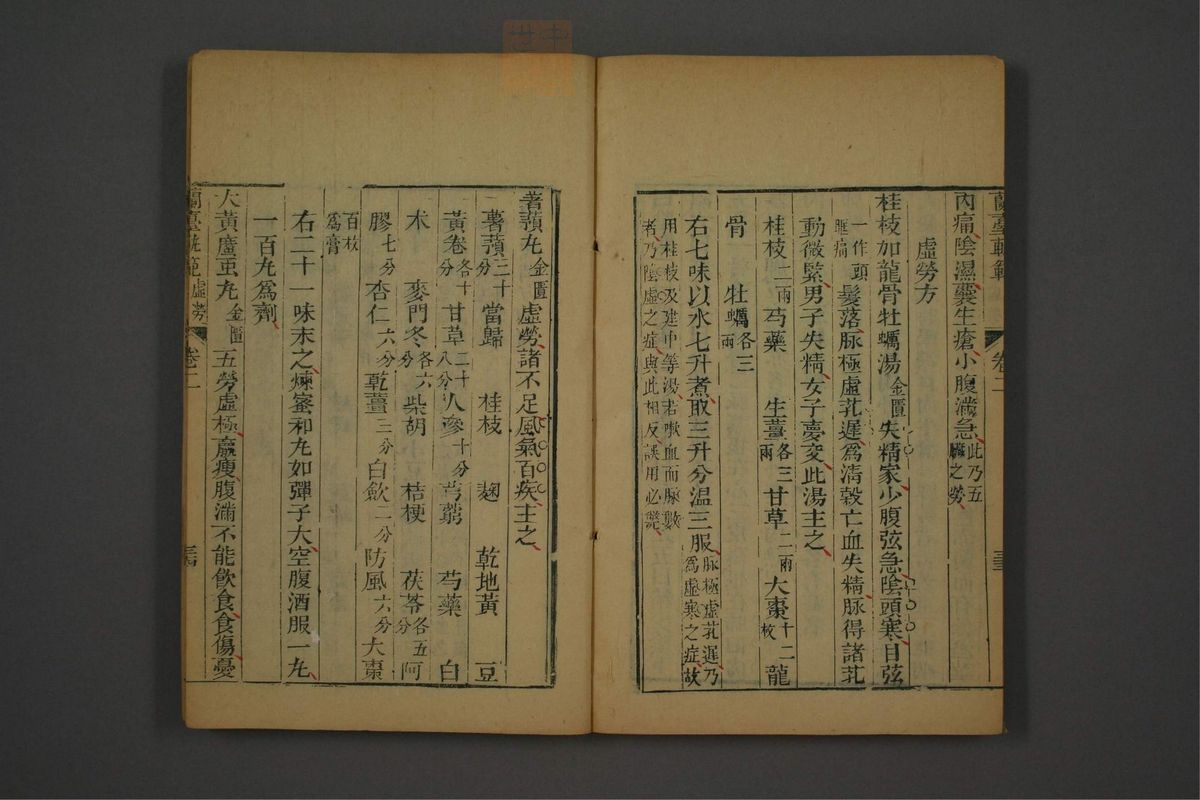 蘭臺軌範 卷二 三三
內痛陰濕囊生瘡小腹滿急此乃五臟之勞
虛勞方
桂枝加龍骨牡蠣湯金匱失精家少腹弦急陰頭寒目弦
一作頭眶痛髮落脉極虛芤遲爲清穀亡血失精脉得諸芤
動微緊男子失精女子夢交此湯主之
桂枝二兩芍藥 生薑各三兩甘草二兩大棗十二枚龍
骨 牡蠣各三兩
右七味以水七升煮取三升分温三服脉極虛芤遲乃爲虛寒之症故
用桂枝及建中等湯若嗽血而脉數者乃陰虛之症與此相反誤用必斃
薯蕷丸金匱虛勞諸不足風氣百疾主之
薯蕷三十分當歸 桂枝 麯 乾地黃 豆
黃卷各十分甘草二十八分人參十分芎藭 芍藥 白
术 麥門冬各六分柴胡 桔梗 茯苓各五分阿
膠七分杏仁六分乾薑三分白歛二分防風六分大棗
百枚爲膏
右二十一味末之煉蜜和丸如彈子大空腹酒服一丸
一百丸爲劑
大黃䗪虫丸金匱五勞虛極羸瘦腹滿不能飲食食傷憂
蘭臺軌範 虛勞 卷二